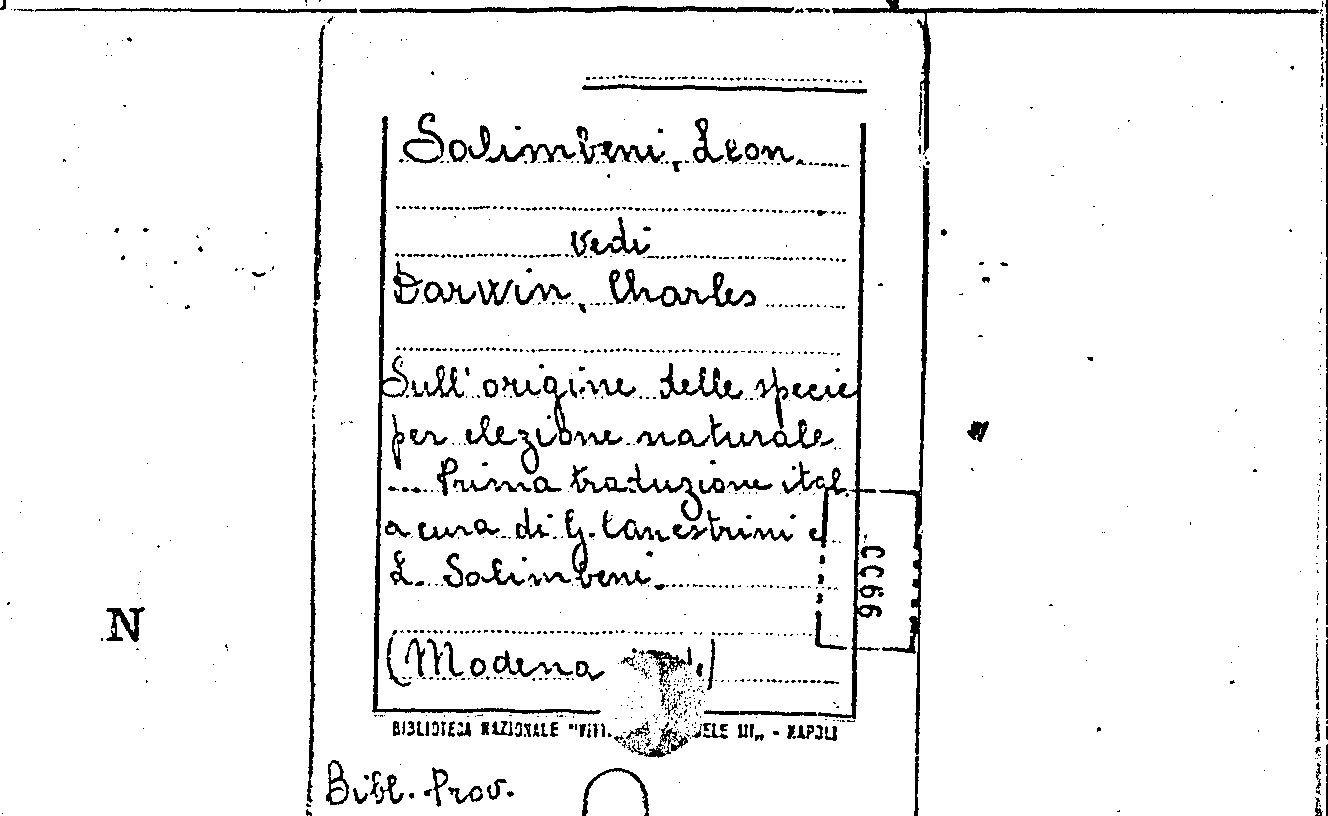 Salimbeni, Leon.
Vedi
Darwin, Charles
Sull' origine delle specie
per elezione naturale
... Prima traduzione ital.
a cura di G. Canestrini e
L. Salimbeni.
CC66
N
(Modena
BIBLIOTECA NAZIONALE "VITT. ELE III„ - NAPOLI
Bibl. Prov.